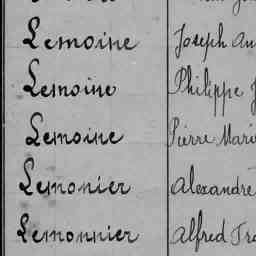 Lemoine Joseph
Lemoine Philippe
Lemoine Pierre
Lemonier Alexandre
Lemonnier Alfred